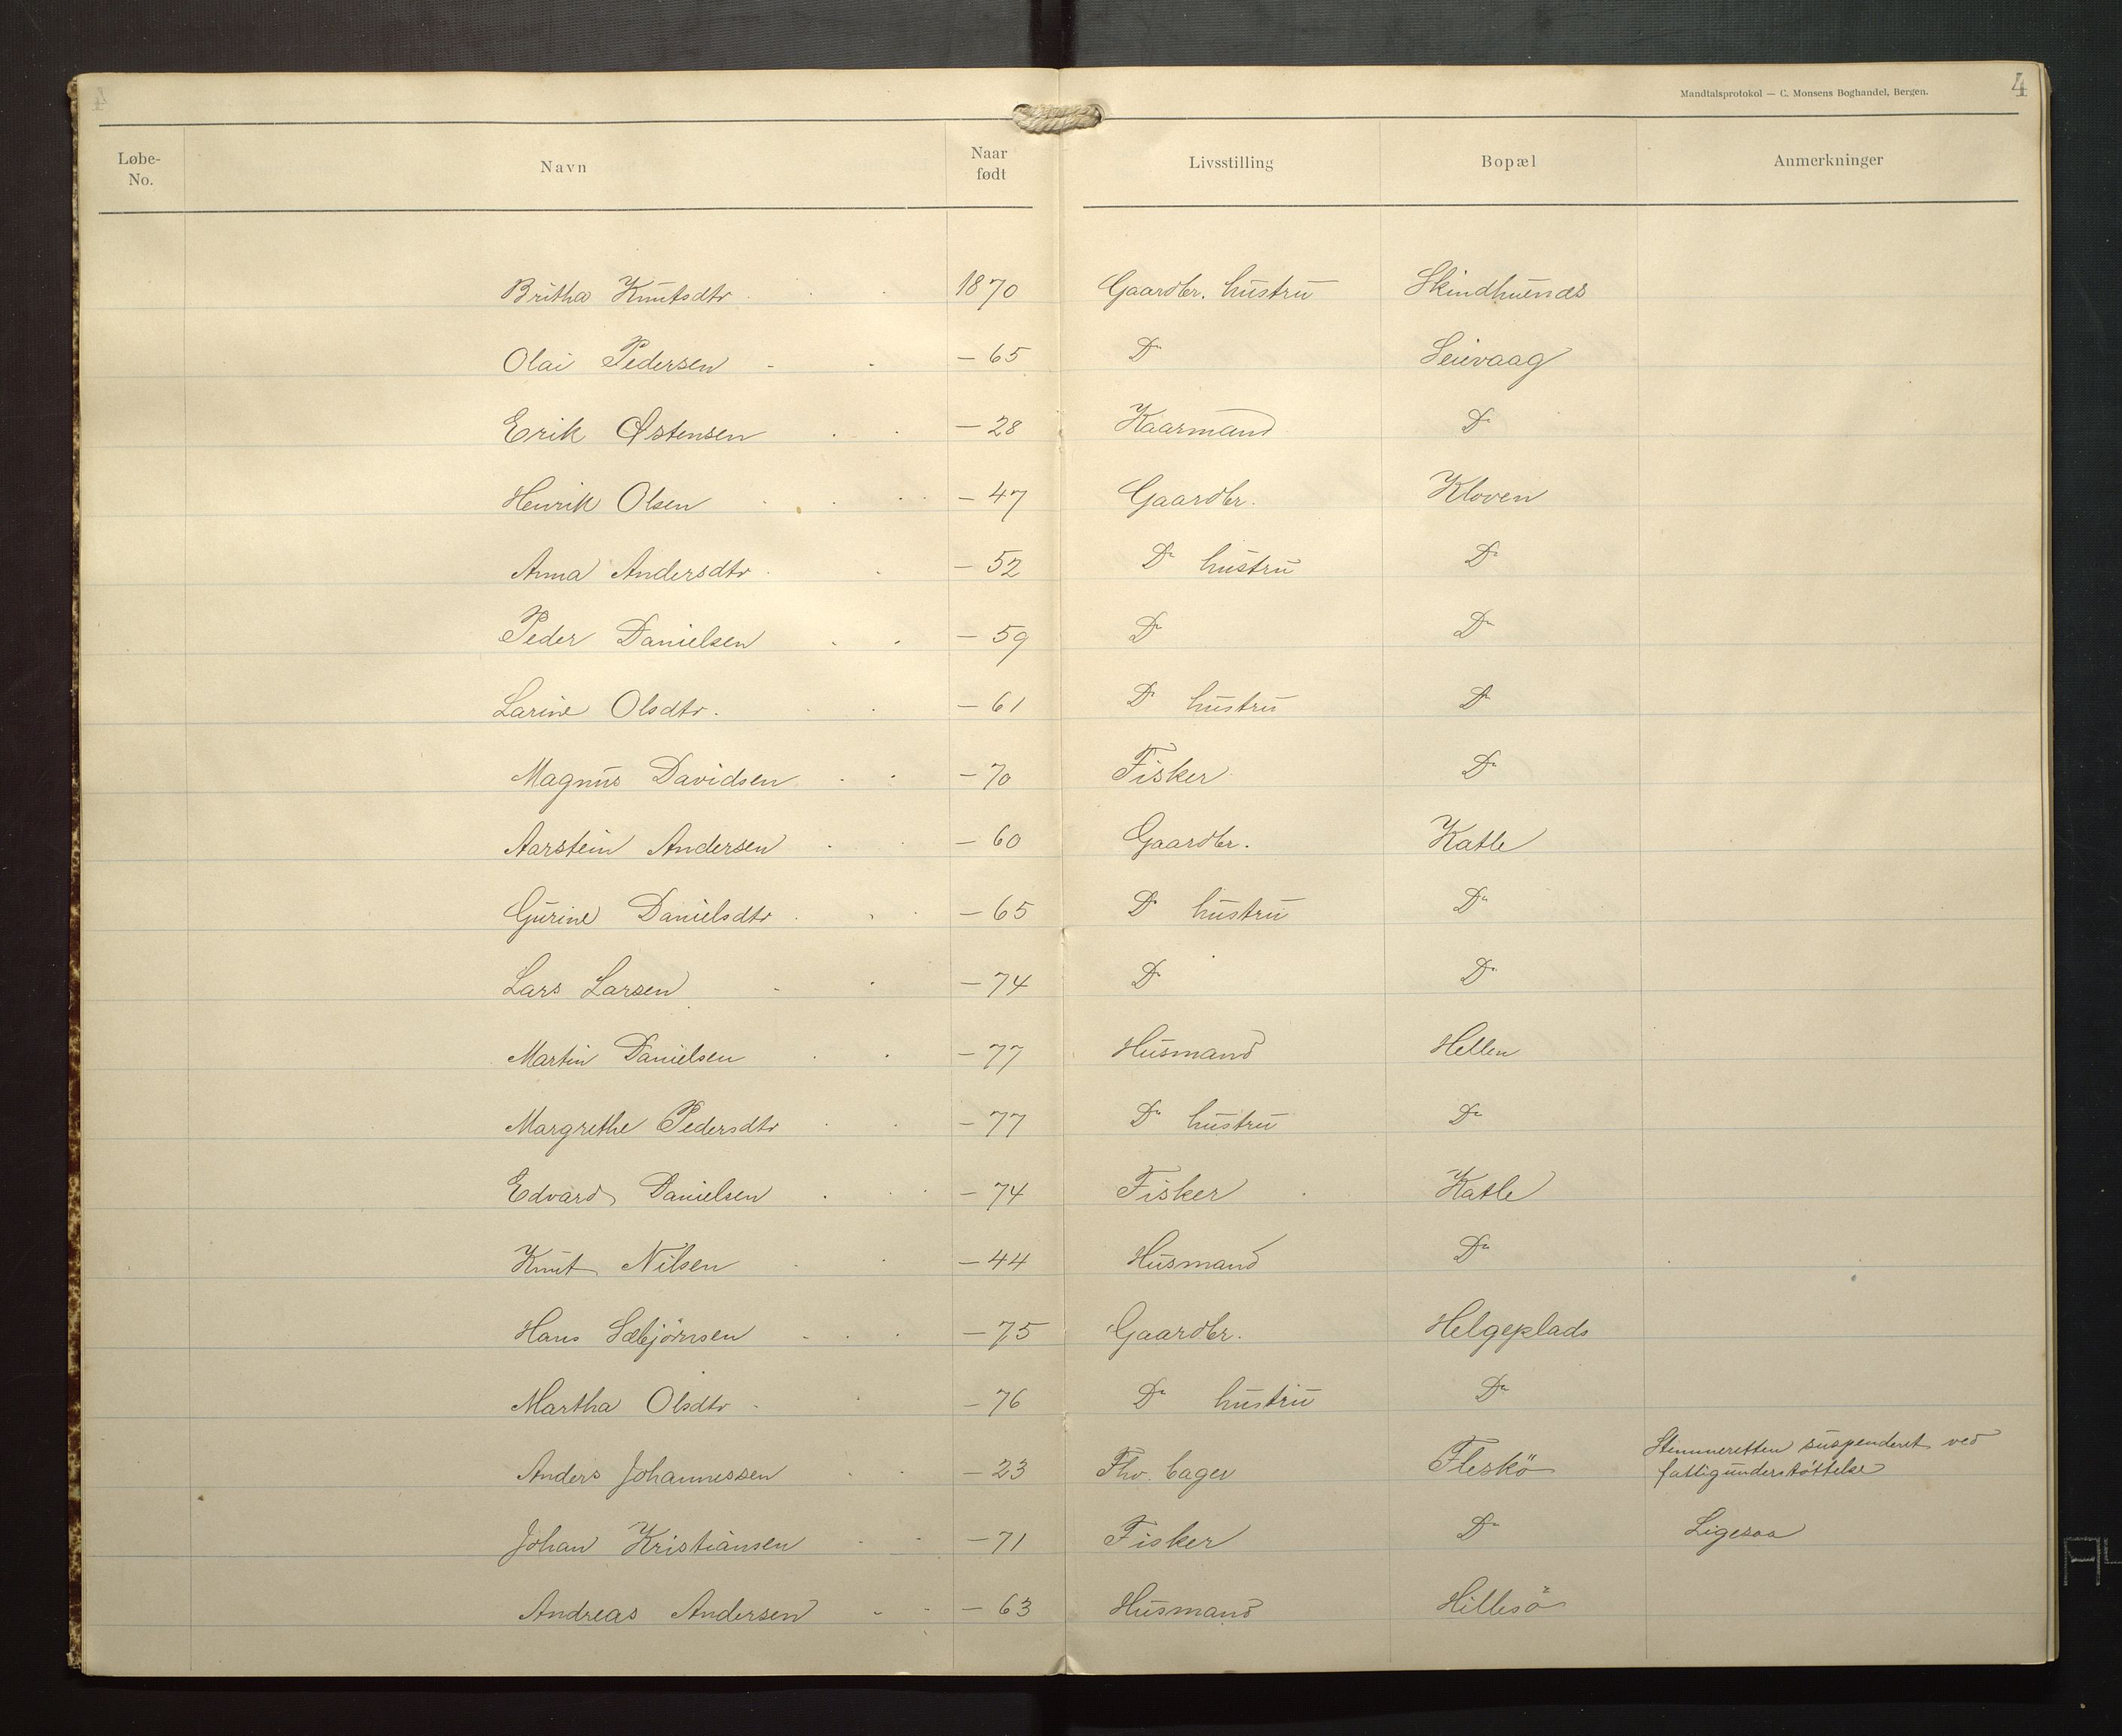 4
Mandtalsprotokol — C. Monsens Boghandel, Bergen.
Løbe-No. Navn Naar født Livsstilling Bopæl Anmerkninger
Britha Knutsdtr. 1870 Gaardbr. hustru Skindhuends
Olai Pedersen — 65 Do Seievaag
Erik Østensen — 28 Kaarmand Do
Henrik Olsen — 47 Gaardbr. Kloven
Anna Andersdtr. — 52 Do hustru Do
Peder Danielsen — 59 Do Do
Larine Olsdtr. — 61 Do hustru Do
Magnus Davidsen — 70 Fisker Do
Aarstein Andersen — 60 Gaardbr. Katle
Gurine Danielsdtr. — 65 Do hustru Do
Lars Larsen — 74 Do Do
Martin Danielsen — 77 Husmand Hellen
Margrethe Pedersdtr — 77 Do hustru Do
Edvard Danielsen — 74 Fisker Katle
Knut Nilsen — 44 Husmand Do
Hans Sæbjörnsen — 75 Gaardbr. Helgeplads
Martha Olsdtr — 76 Do hustru Do
Anders Johannessen — 23 Fhv. bager Fleskö Stemmeretten suspenderet ved fattigunderstöttelse
Johan Kristiansen — 71 Fisker Do Ligesaa
Andreas Andersen — 63 Husmand Hillesö